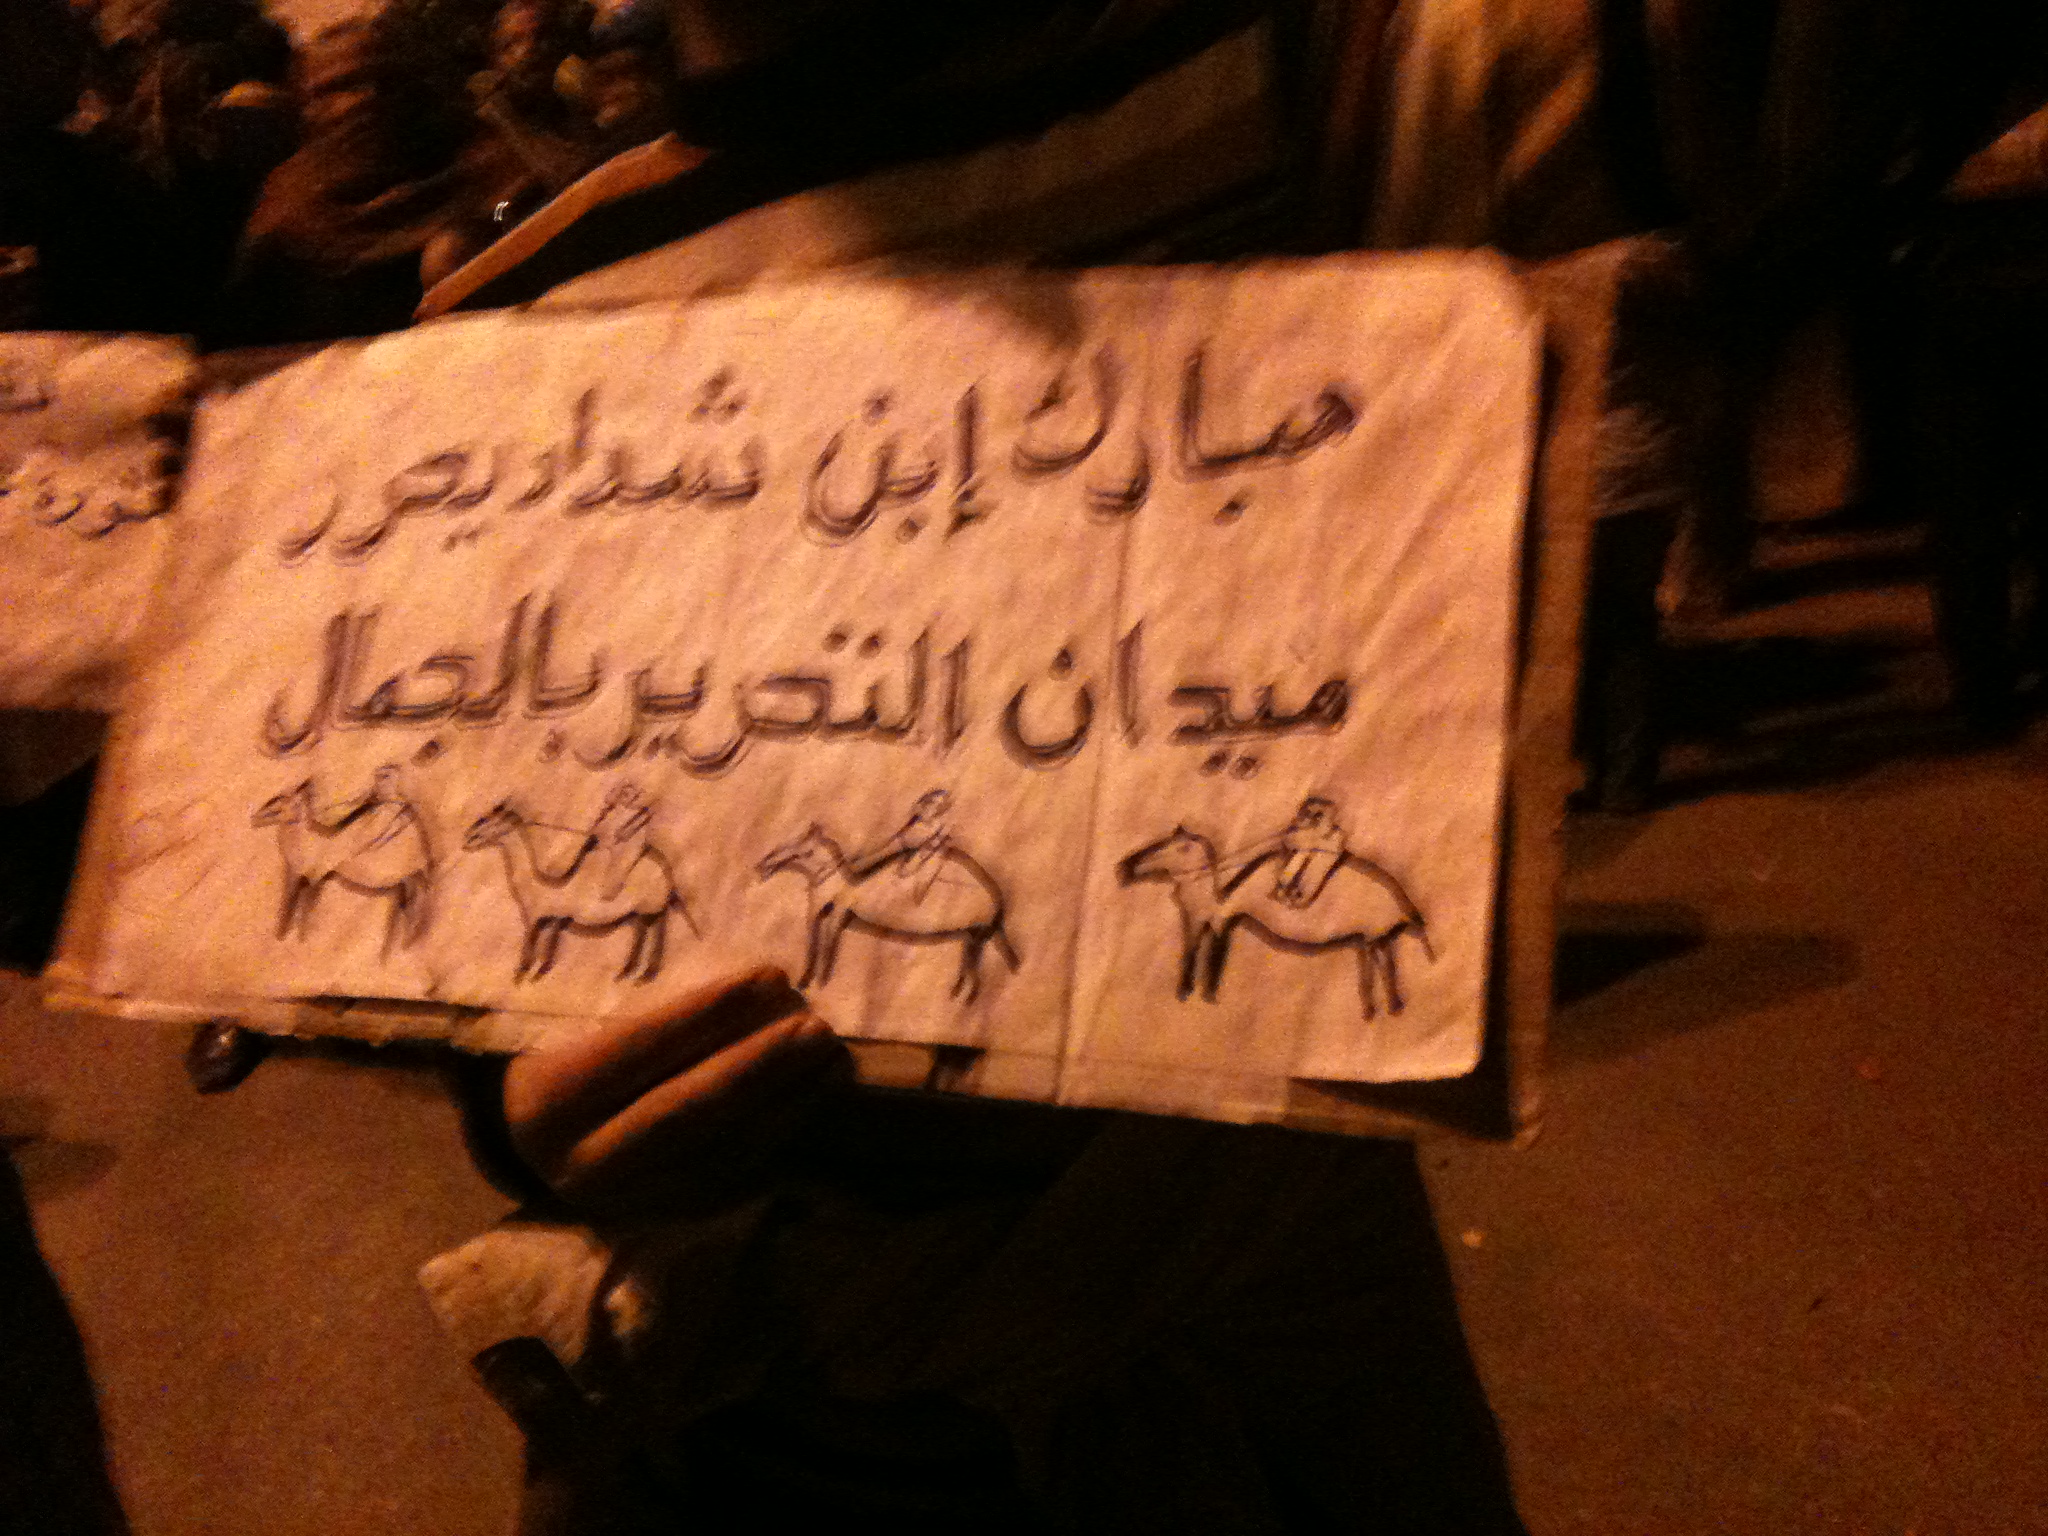 مبارك إبن شداد يحرر
ميدان التحرير بالجمال
ثورة